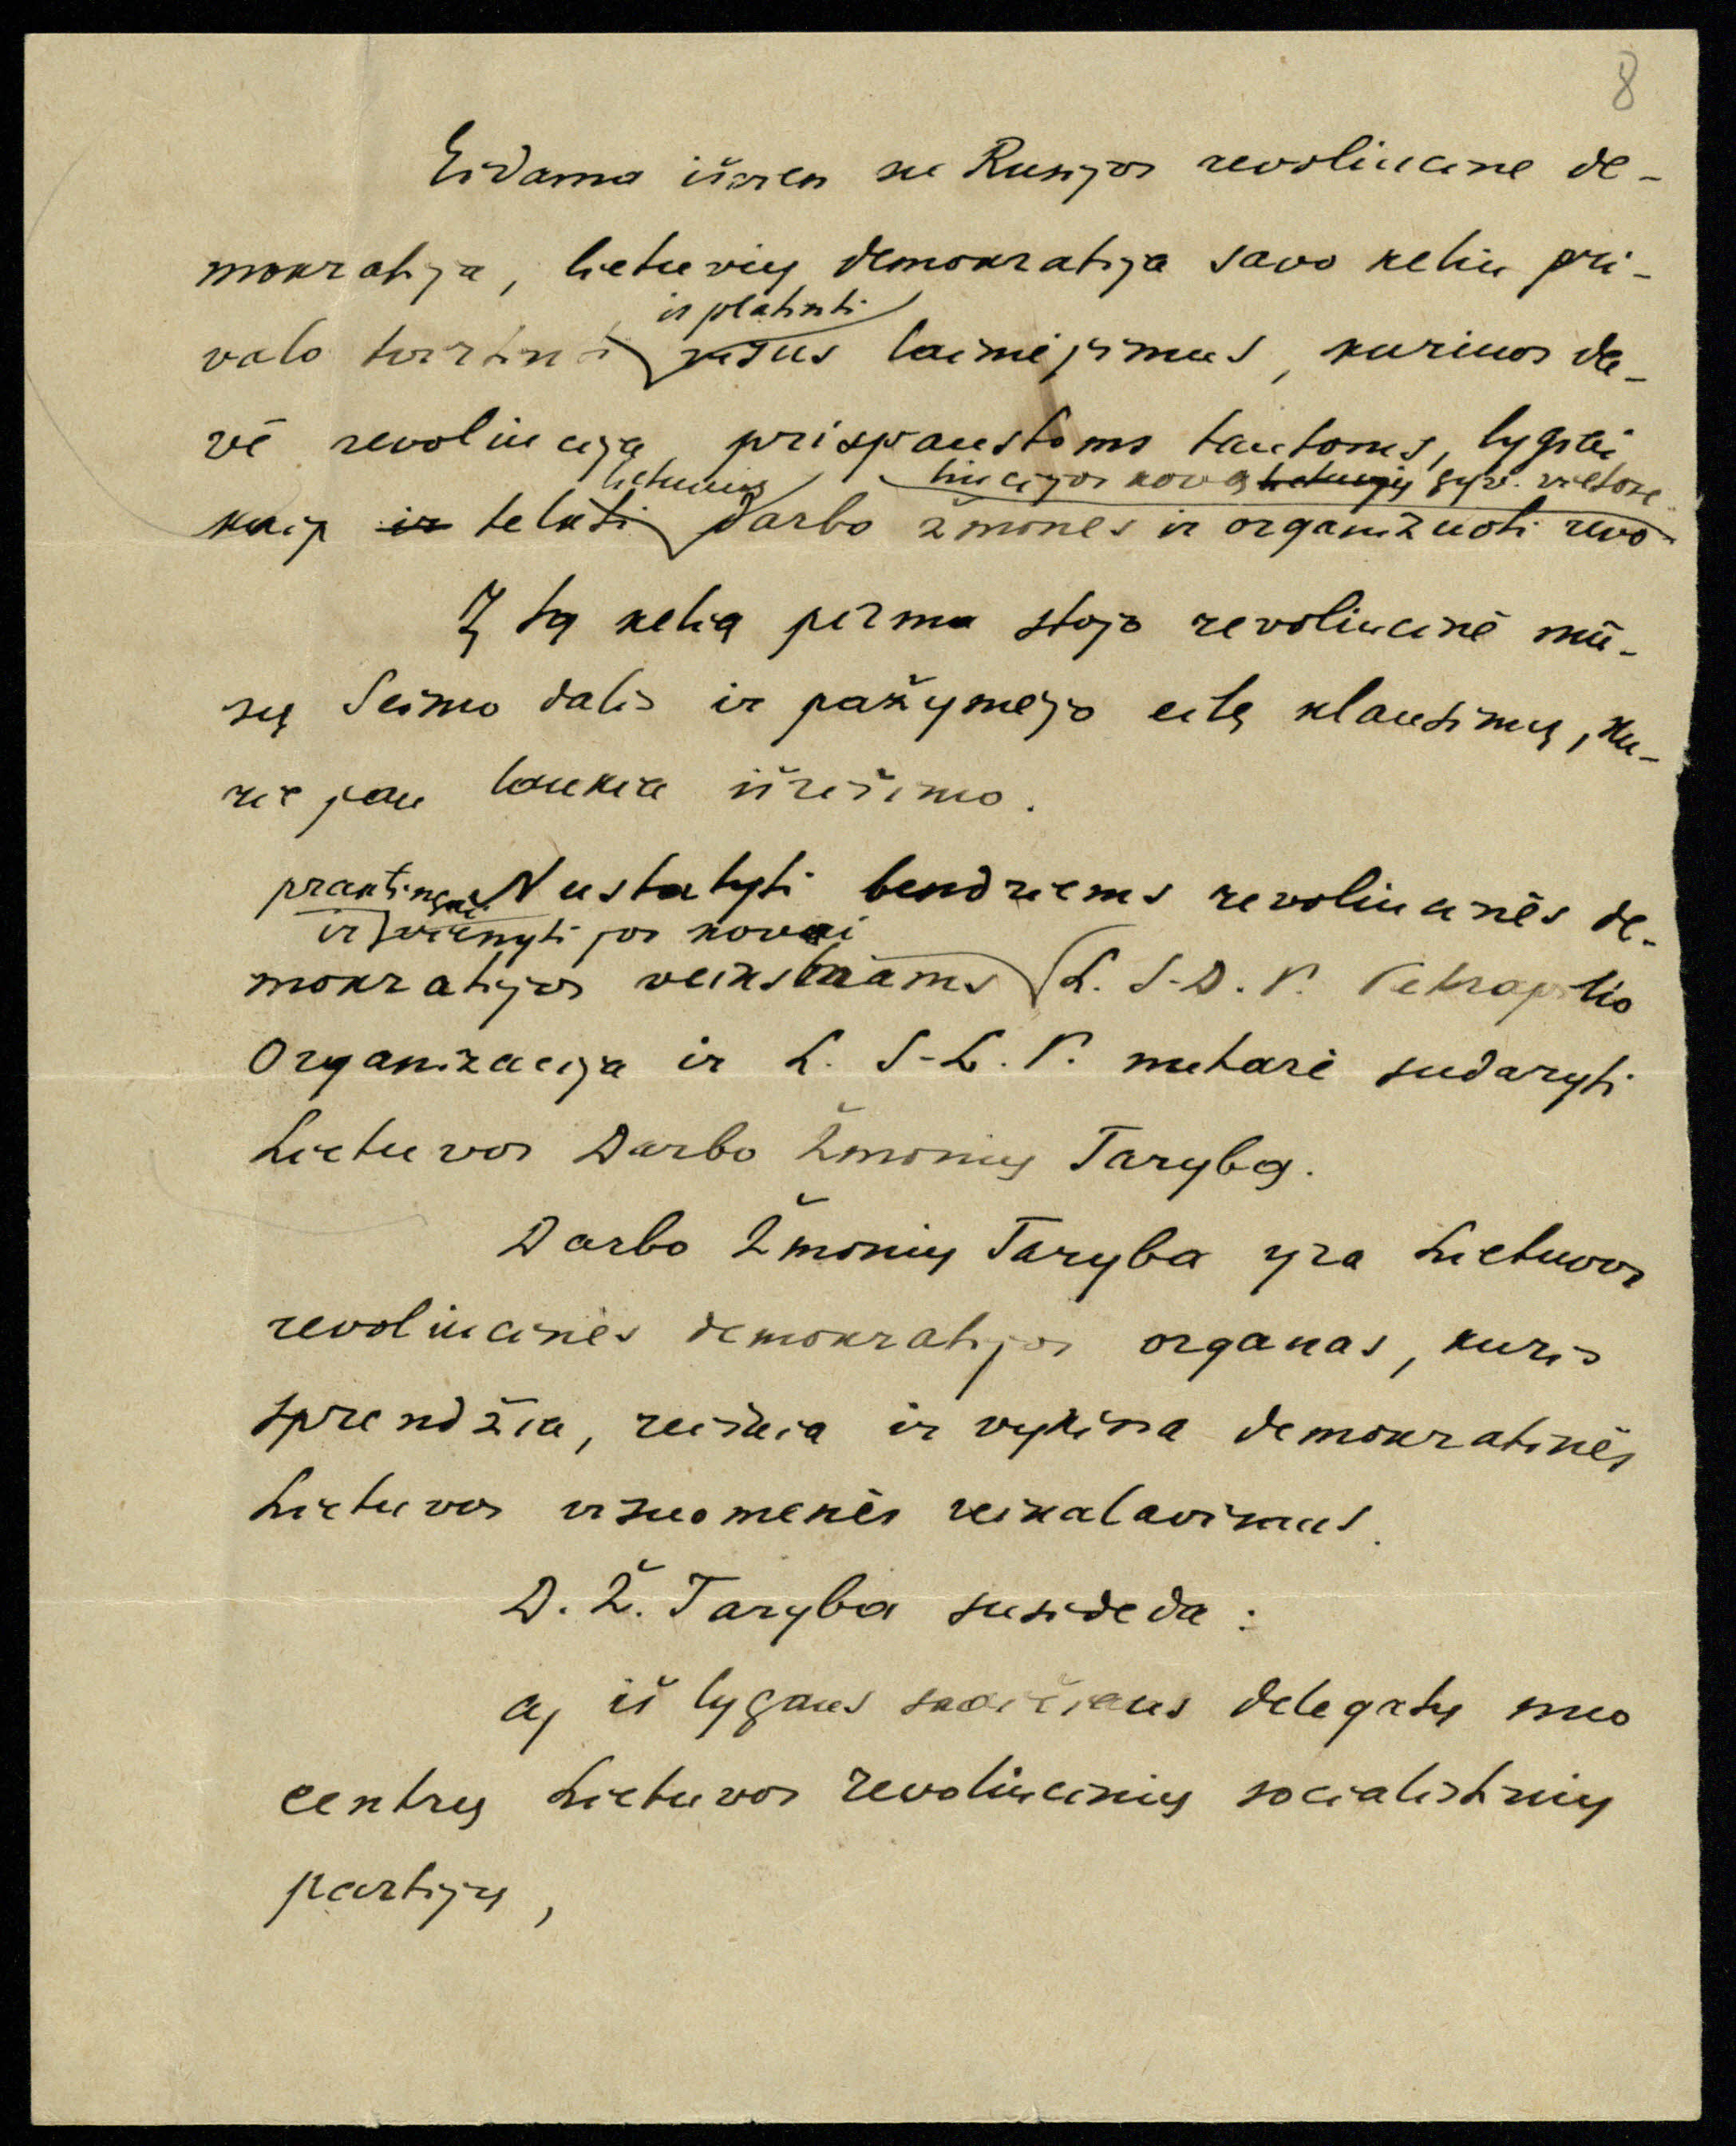 8
Eidama išvien su Rusijos revoliucine de-
mokratija, lietuvių demokratija savo keliu pri-
ir platinti
valo tvirtinti visus laimėjimus, kuriuos da-
vė revoliucija prispaustoms tautoms, lygiai
lietuvius liucijos kovą lietuvių gyv. vietose
kaip ir telkti darbo žmones ir organizuoti revo-
Į tą kelią pirma stojo revoliucinė mū-
sų Seimo dalis ir pažymėjo eilę klausimų, ku-
rie jau laukia išrišimo.
praktingai Nustatyti bendriems revoliucinės de-
ir vienyti jos kovai
mokratijos veiksmams L. S-D. P. Petrapilio
Organizacija ir L. S-L. P. nutarė sudaryti
Lietuvos Darbo Žmonių Tarybą.
Darbo Žmonių Taryba yra Lietuvos
revoliucinės demokratijos organas, kuris
sprendžia, reiškia ir vykina demokratinės
Lietuvos visuomenės reikalavimus.
D. Ž. Taryba susideda:
a) iš lygaus skaičiaus delegatų nuo
centrų Lietuvos revoliucinių socialistinių
partijų,